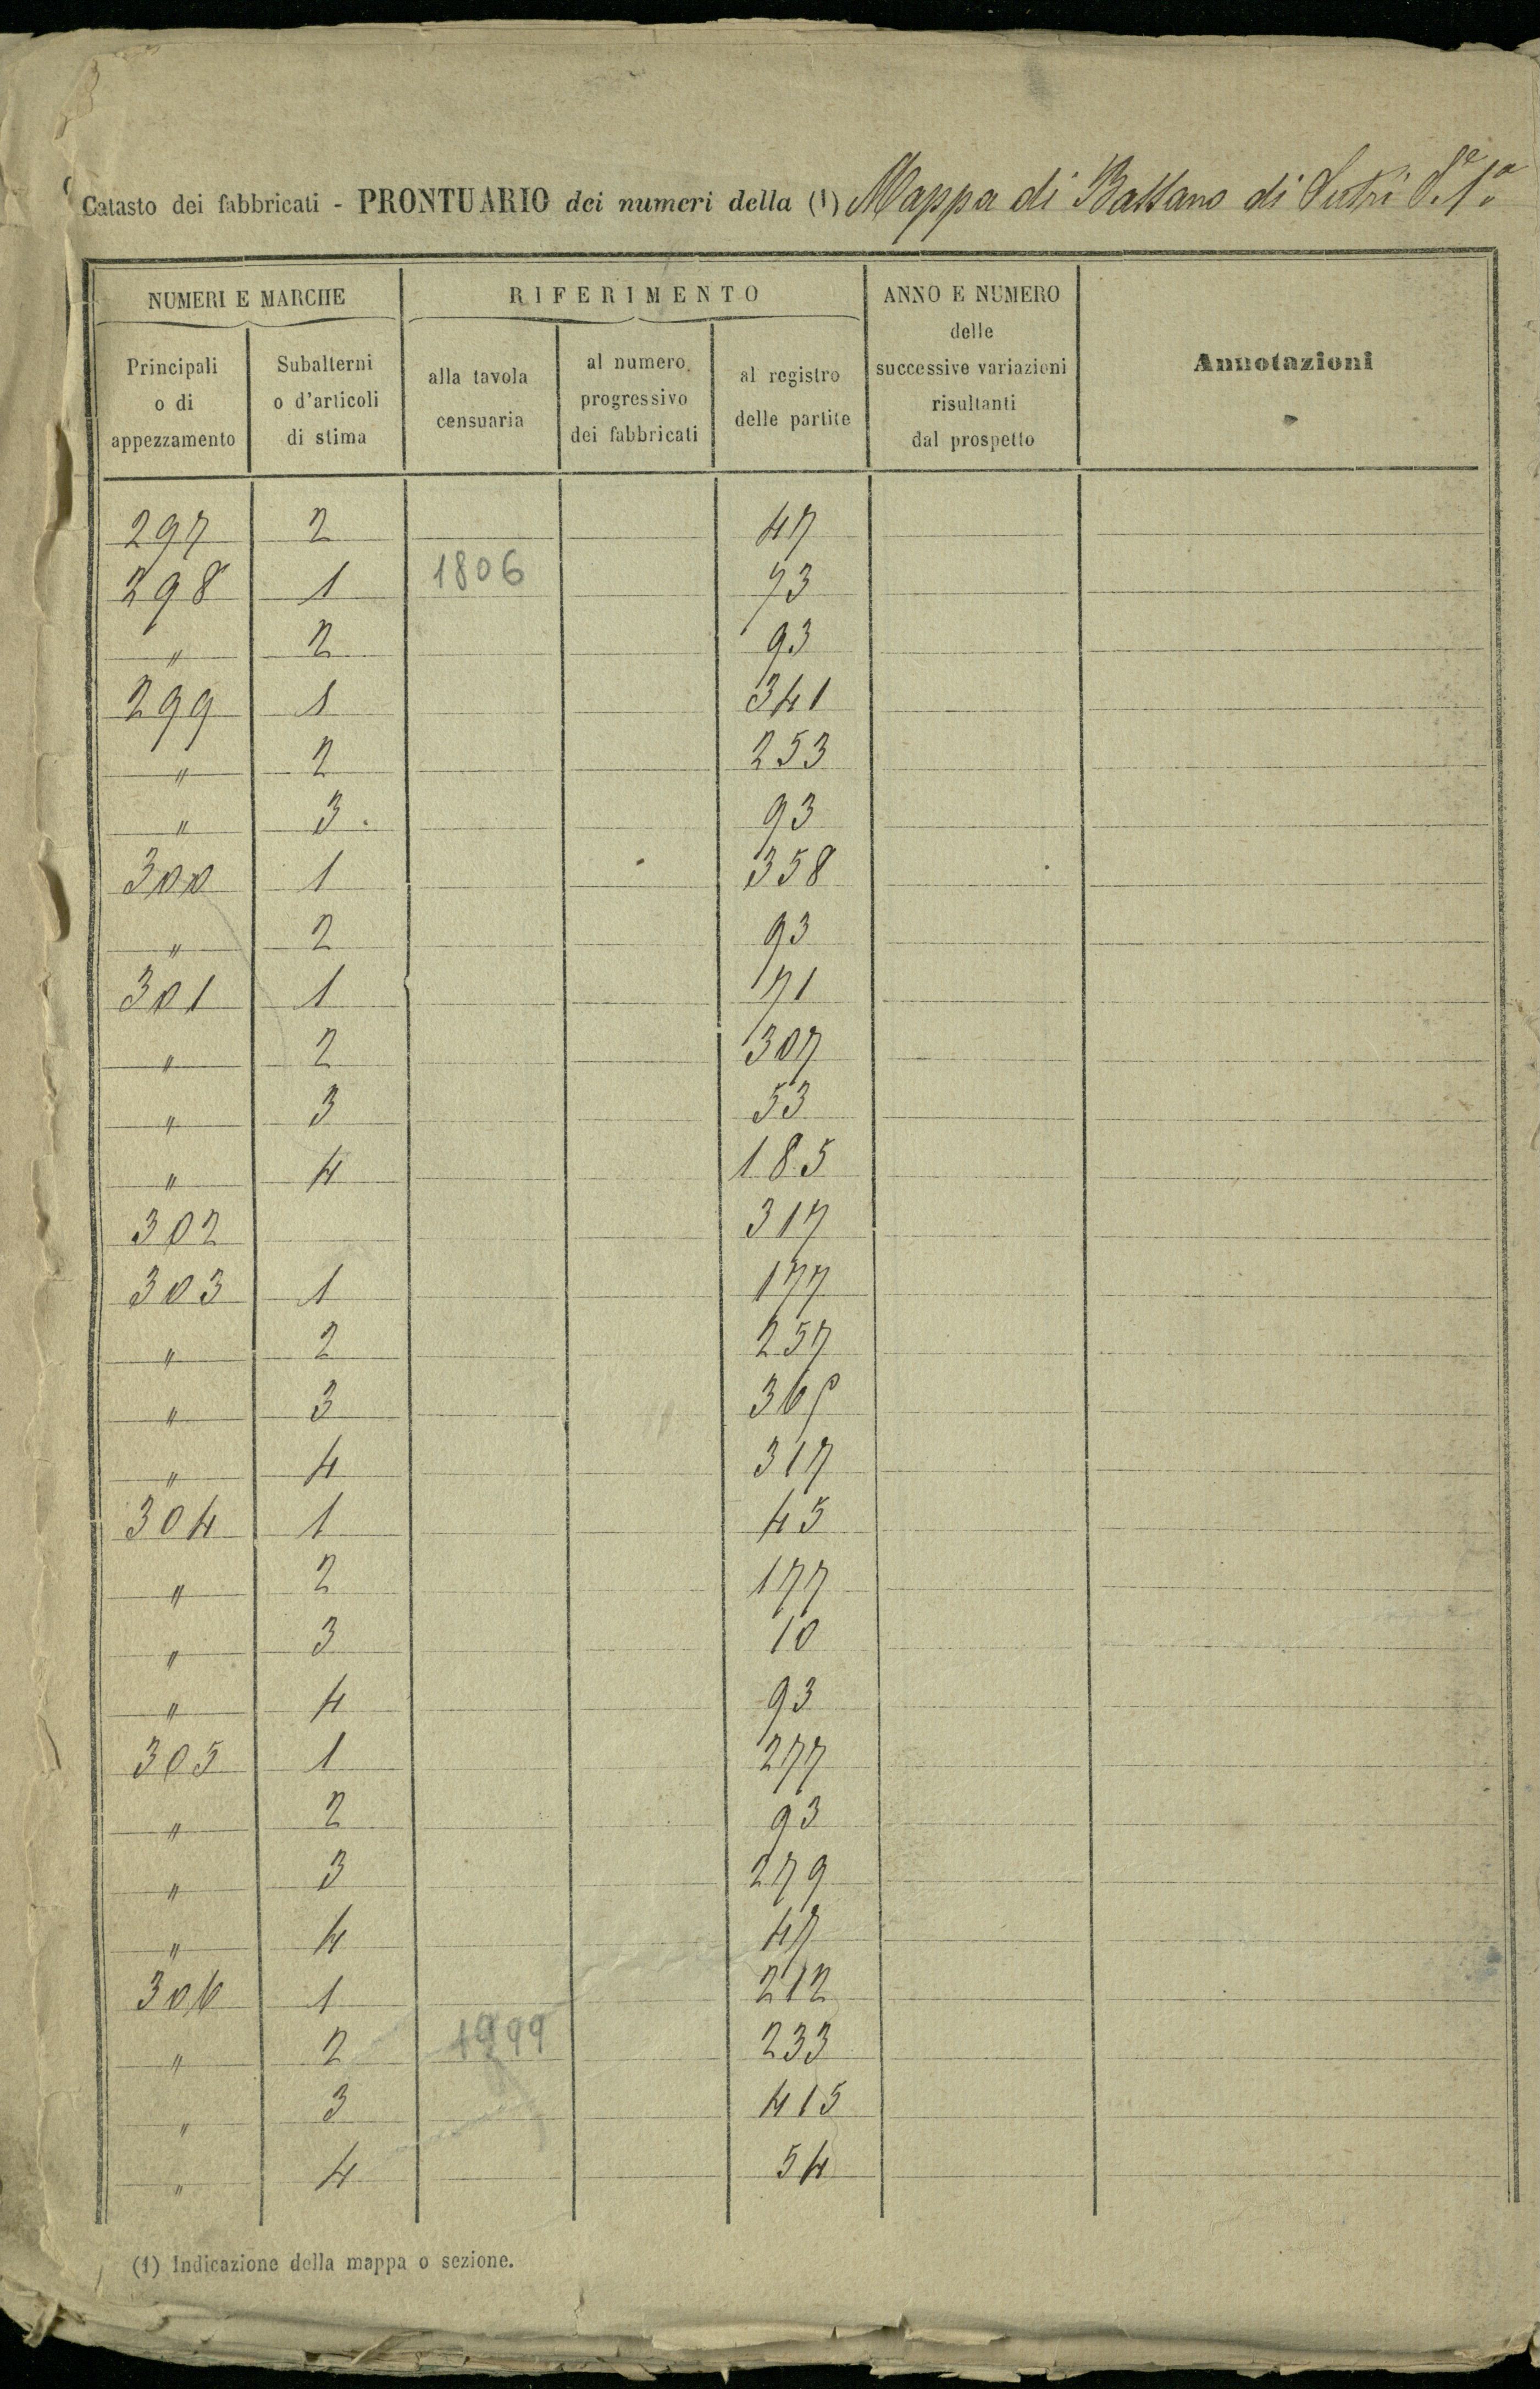 Catasto dei fabbricati - PRONTUARIO dei numeri della (1) Mappa di Bassano di Sutri S.e 1.a
NUMERI E MARCHE
RIFERIMENTO
ANNO E NUMERO delle successive variazioni risultanti dal prospetto
Annotazioni
Principali o di appezzamento
Subalterni o d'articoli di stima
alla tavola censuaria
al numero progressivo dei fabbricati
al registro delle partite
297 2 47
298 1 1806 73
" 2 93
299 1 341
" 2 253
" 3 93
300 1 358
" 2 93
301 1 71
" 2 307
" 3 53
" 4 185
302 317
303 1 177
" 2 257
" 3
" 4 317
304 1 45
" 2 177
" 3 10
" 4 93
305 1 277
" 2 93
" 3 279
" 4 47
306 1 212
" 2 1999 233
" 3 415
" 4 54
(1) Indicazione della mappa o sezione.